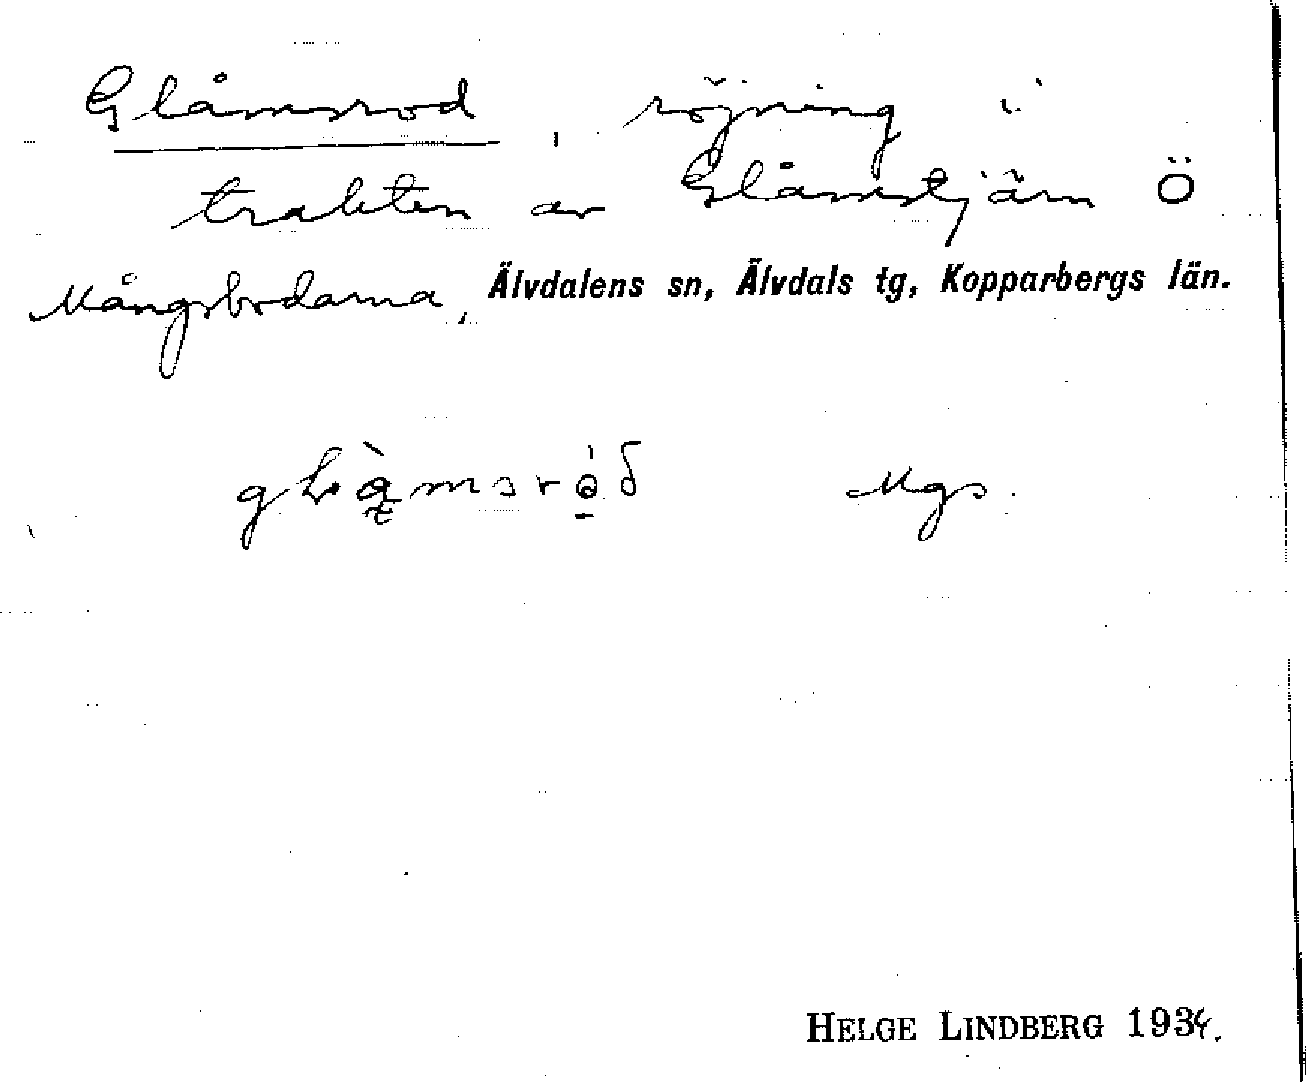 Glåmsrod, röjning i
trakten av Glåmstjärn Ö
Mångsbodarna, Älvdalens sn, Älvdals tg, Kopparbergs län.
Mgs.
HELGE LINDBERG 1934.